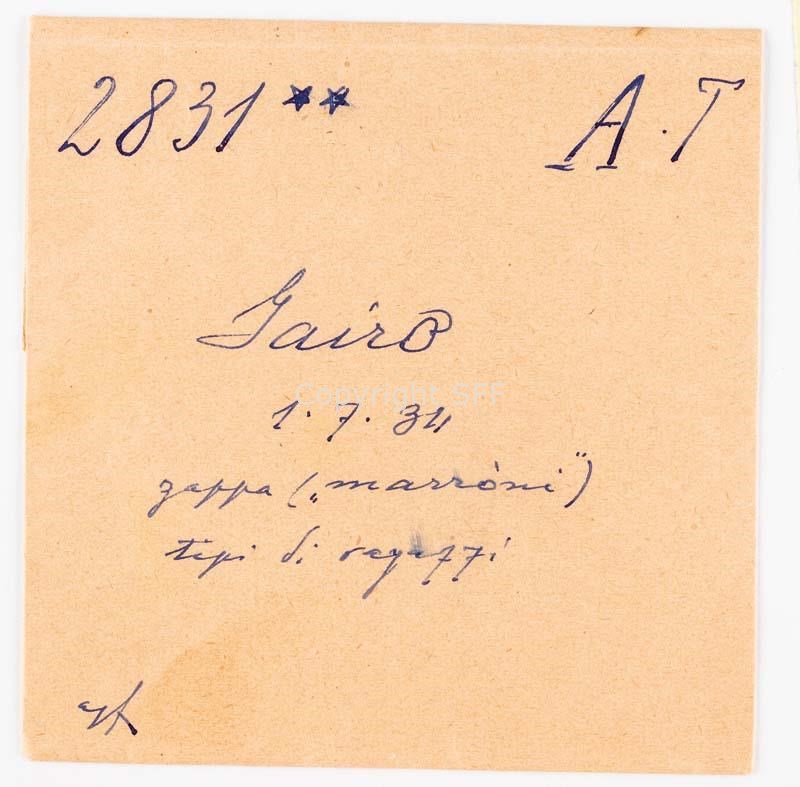 2831 ** A.T
Gairo
Copyright SFF
1.7.34
zappa („marròni")
tipi di ragazzi